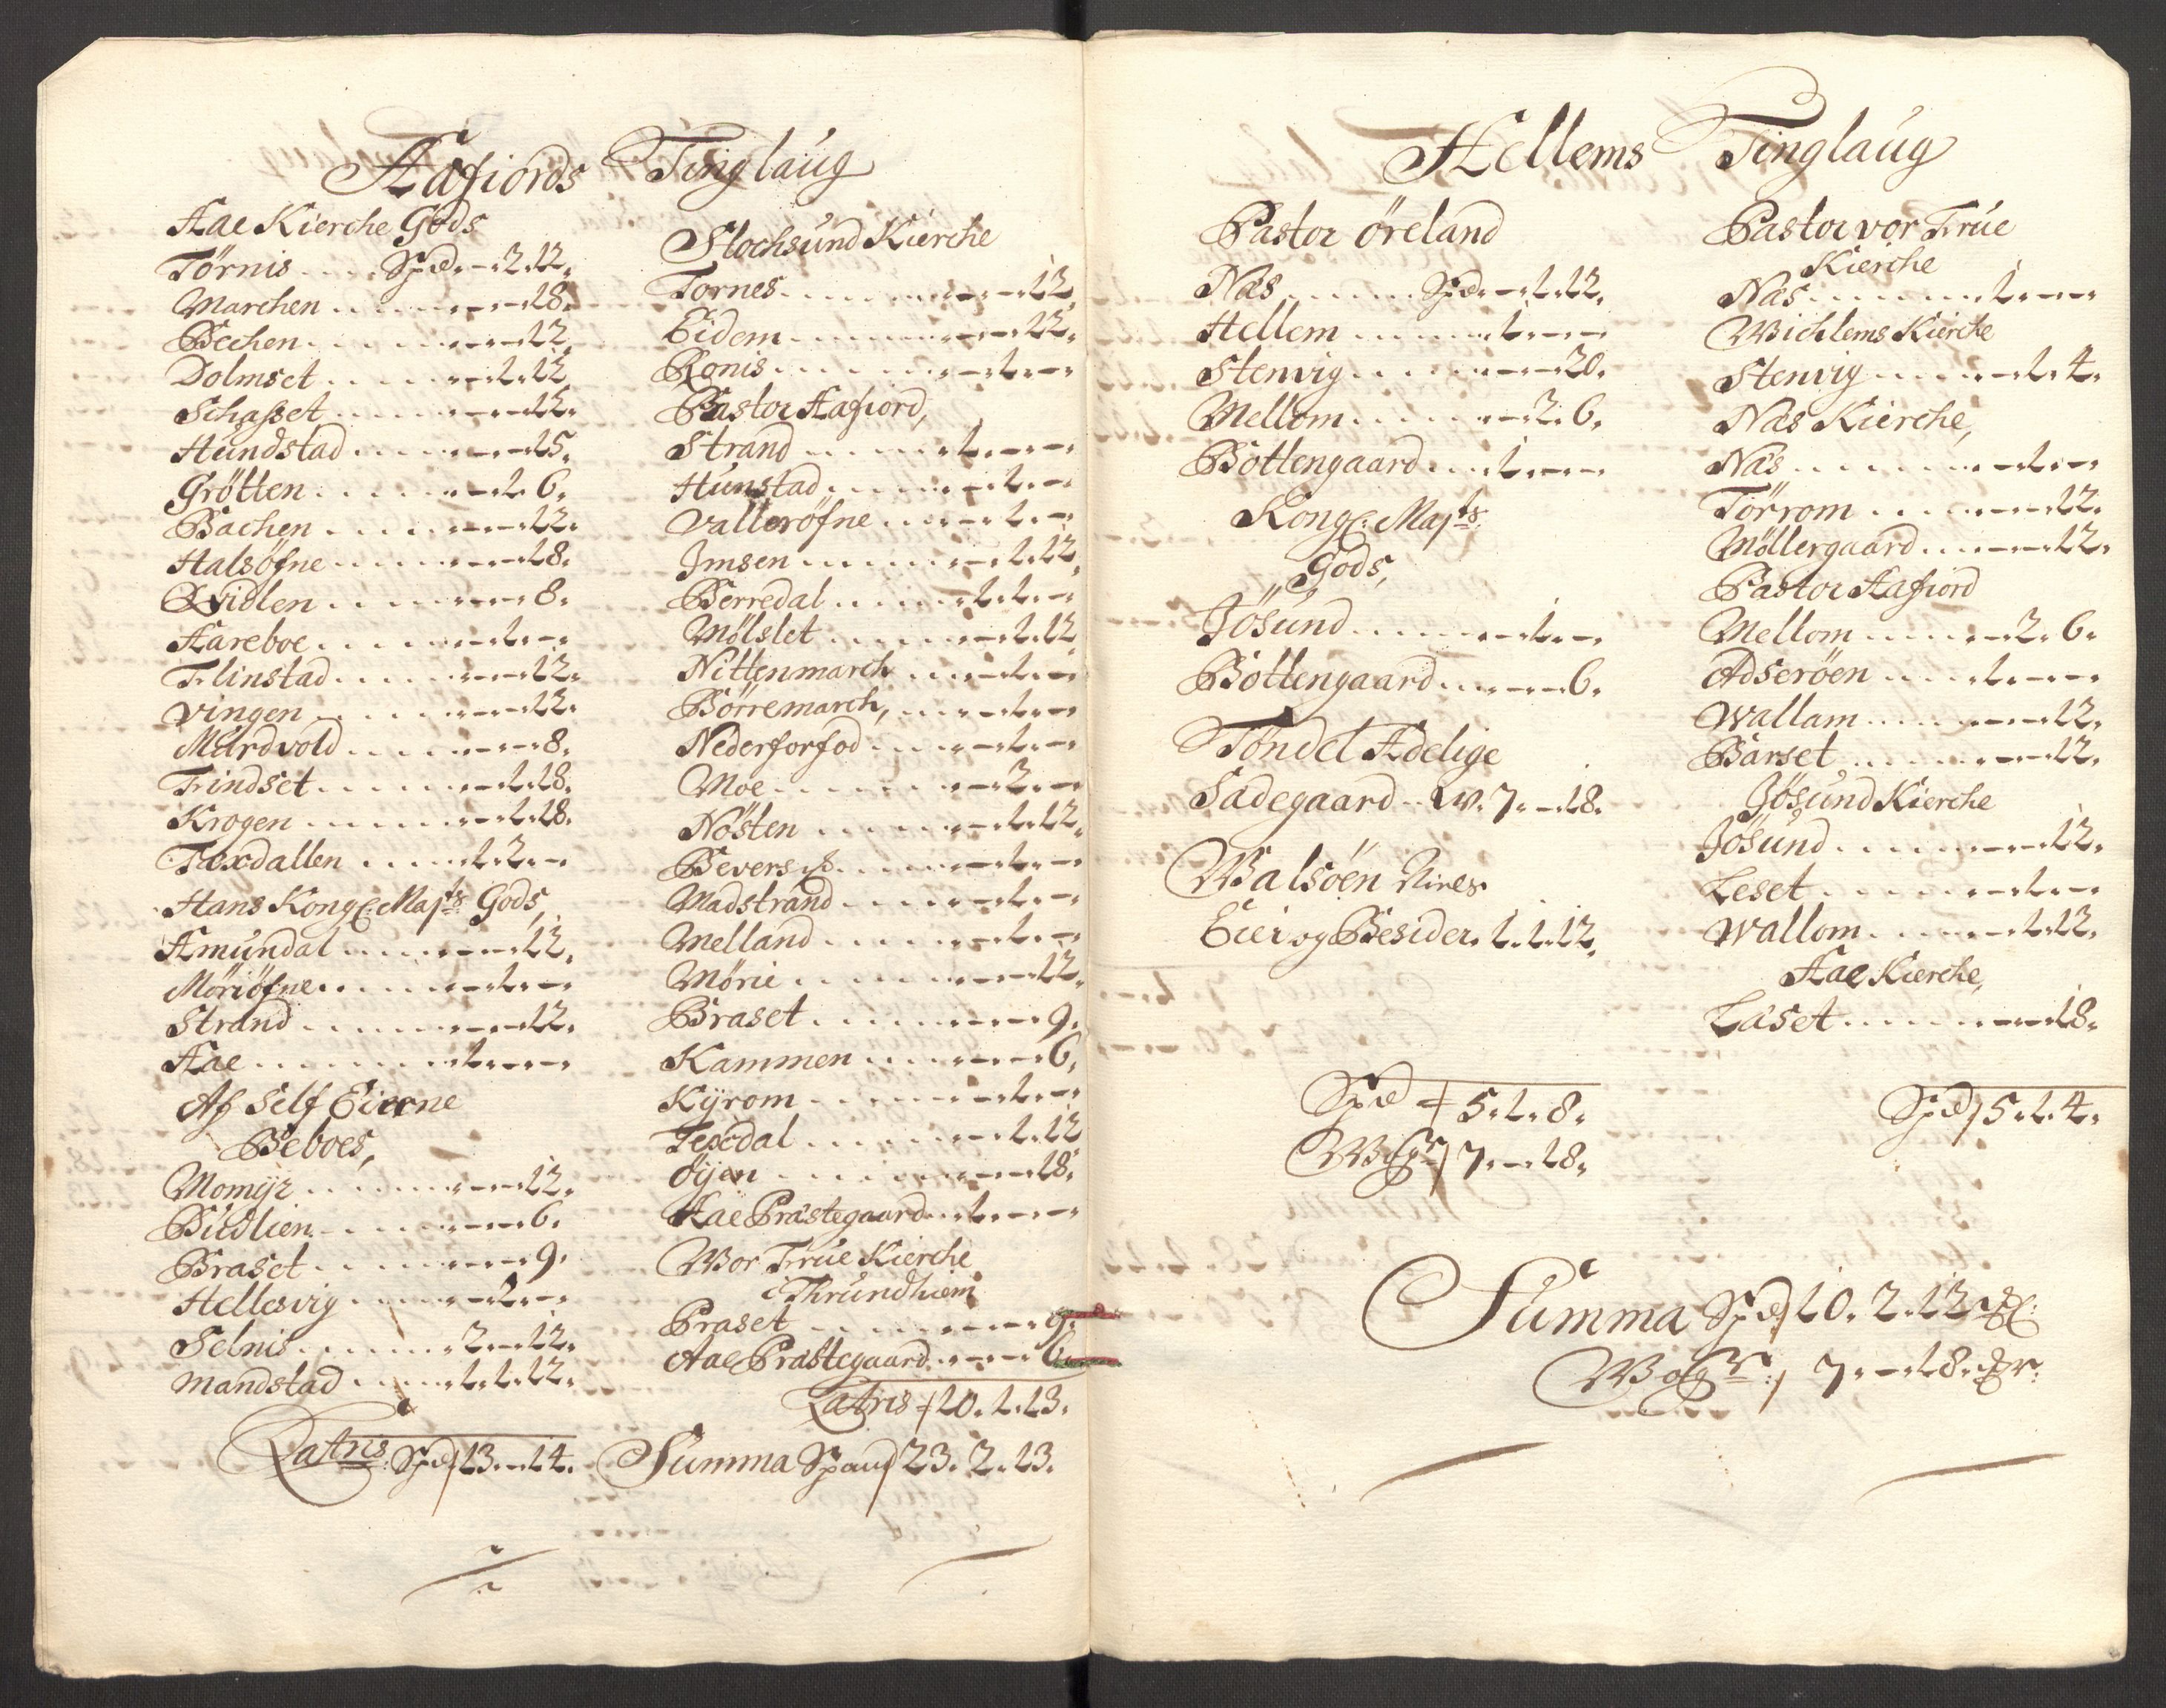 Aafiords Tinglaug
Aae Kierche Gods
Törnis . . . . Spd. - 2. 12.
Marchen . . . . . - - - 18.
Bechen . . . . . - - - 12.
Dolmset . . . . - - 1. 12.
Schasset . . . . . - - - 12.
Hundstad . . . . . - - - 15.
Grötten . . . . . - - 1. 6.
Bachen . . . . . - - - 12.
Halsöfne . . . . . - - - 18.
Qvidlen . . . . . - - - 8.
Aareboe . . . . . - - 1. - -
Flinstad . . . . . - - - 12.
Vingen . . . . . - - - 12.
Murdvold . . . . . - - - 8.
Frindset . . . . . - - 1. 18.
Krogen . . . . . - - 1. 18.
Taxdallen . . . . . 1. 2. - -
Hans Kongl: Majts Gods
Amundal . . . . . - - - 12.
Moriöfne . . . . . - - 1. - -
Strand . . . . . - - - 12.
Aae . . . . . . 1. - - -
Af Self Eierne
Beboes,
Momyr . . . . . - - - 12.
Budlien . . . . . - - - 6.
Braset . . . . . - - - 9.
Hellesvig . . . . . - - 2. - -
Selnis . . . . . 2. - 12.
Mandstad . . . . . 1. 1. 12.
Latris Spd 13. - 14.
Stochsund Kierche
Tornes . . . . . - - - 12.
Eidem . . . . . - - - 12.
Ronis . . . . . - - 1. - -
Pastor Aafiord,
Strand . . . . . 1. - - -
Hunstad . . . . . - - 1. - -
Vallersöfne . . . . . - - 1. - -
Jmsen . . . . . - - 1. 12.
Berredal . . . . . 1. 1. - -
Mølslet . . . . . - - 1. 12.
Nittenmarch . . . . . - - 1. - -
Börremarch, . . . . . - - 1. - -
Nederforfod . . . . . - - 1. - -
Moe . . . . . - - 2. - -
Nösten . . . . . - - 1. 12.
Bevers . . . . . - - 1. - -
Madstrand . . . . . - - 1. - -
Melland . . . . . - - 1. - -
Mørie . . . . . - - - 12.
Braset . . . . . - - - 9.
Kammen . . . . . - - - 6.
Kyrom . . . . . - - 1. - -
Texdal . . . . . - - 1. 12
Öyen . . . . . - - - 18.
Aae Præstegaard . . 1. - - -
Wor Frue Kierche
i Thrundhiem
Praset . . . . . - - - 9.
Aae Præstegaard . . - - - 6.
Latris 10. 1. 13.
Summa Spand 23. 2. 13.
Hellems Tinglaug
Pastor öreland
Næs . . . . . Spd. - 1. 12.
Hellem . . . . . 1. - - -
Stenvig . . . . . - - - 20.
Mellom . . . . . - - 2. 6.
Bottengaard . . . 1. - - -
Kongl: Majts
Gods,
Jösund . . . . . - - 1. - -
Bottengaard . . . . - - - 6.
Töndel Adelige
Sædegaard . . W. 7. - 18.
Walsöen
Eier og Besider. 1. 1. 12.
Spd 5. 1. 8.
Wogr 7. - 18.
Pastor vor Frue
Kierche
Næs . . . . . 1. - - -
Wichlems Kierche
Stenvig . . . . . - - 1. 4.
Næs Kierche,
Næs . . . . . - - 1. - -
Törrom . . . . . - - - 12.
Möllergaard . . . . - - - 12.
Pastor Aafiord
Mellom . . . . . - - 2. 6.
Adseröen . . . . . 1. - - -
Wallam . . . . . - - - 12.
Barset . . . . . - - - 12.
Jösund Kierche
Jösund . . . . . - - - 12.
Leset . . . . . - - 1. - -
Wallom . . . . . - - 1. 12.
Aae Kierche,
Læset . . . . . - - - 18.
Spd 5. 1. 4.
Summa Spd 10. 2. 12
Wogr: 7. - 18.